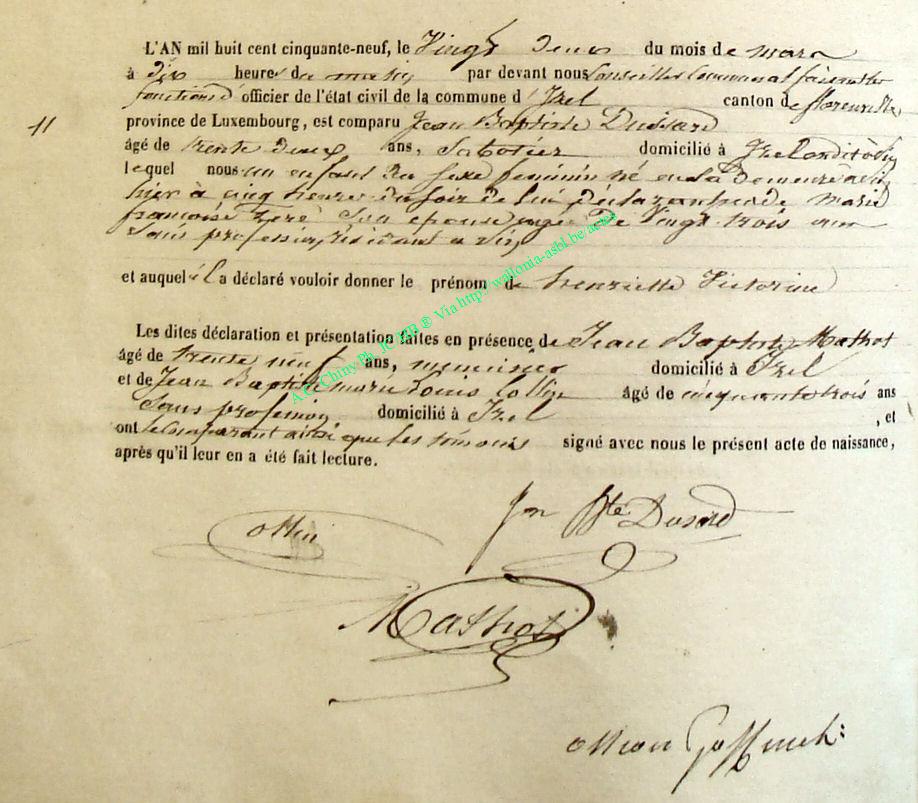 L'AN mil huit cent cinquante-neuf, le Vingt deux du mois de mars
à dix heures du matin par devant nous Conseiller Communal faisant les
fonctions d'officier de l'état civil de la commune d'Izel canton de florenville
province de Luxembourg, est comparu Jean Baptiste Dussard
11
âgé de trente deux ans, Sabotier domicilié à Izel
lequel nous un enfant du sexe feminin né en sa demeure
hier à cinq heures du soir de lui déclarant et de marie
françoise son epouse agée de Vingt trois ans
Sans profession, résidant a
et auquel il a déclaré vouloir donner le prénom de henriette Victorine
Les dites déclaration et présentation faites en présence de Jean Baptiste Mathot
âgé de trente neuf ans, menuisier domicilié à Izel
et de Jean Baptiste marie Louis âgé de cinquante trois ans
Sans profession domicilié à Izel , et
ont le Comparant ainsi que les temoins signé avec nous le présent acte de naissance,
après qu'il leur en a été fait lecture.
A.C. Chiny Ph. ® Via http://wallonia-asbl.be/actes
Jean Bte Dusard
Mathot